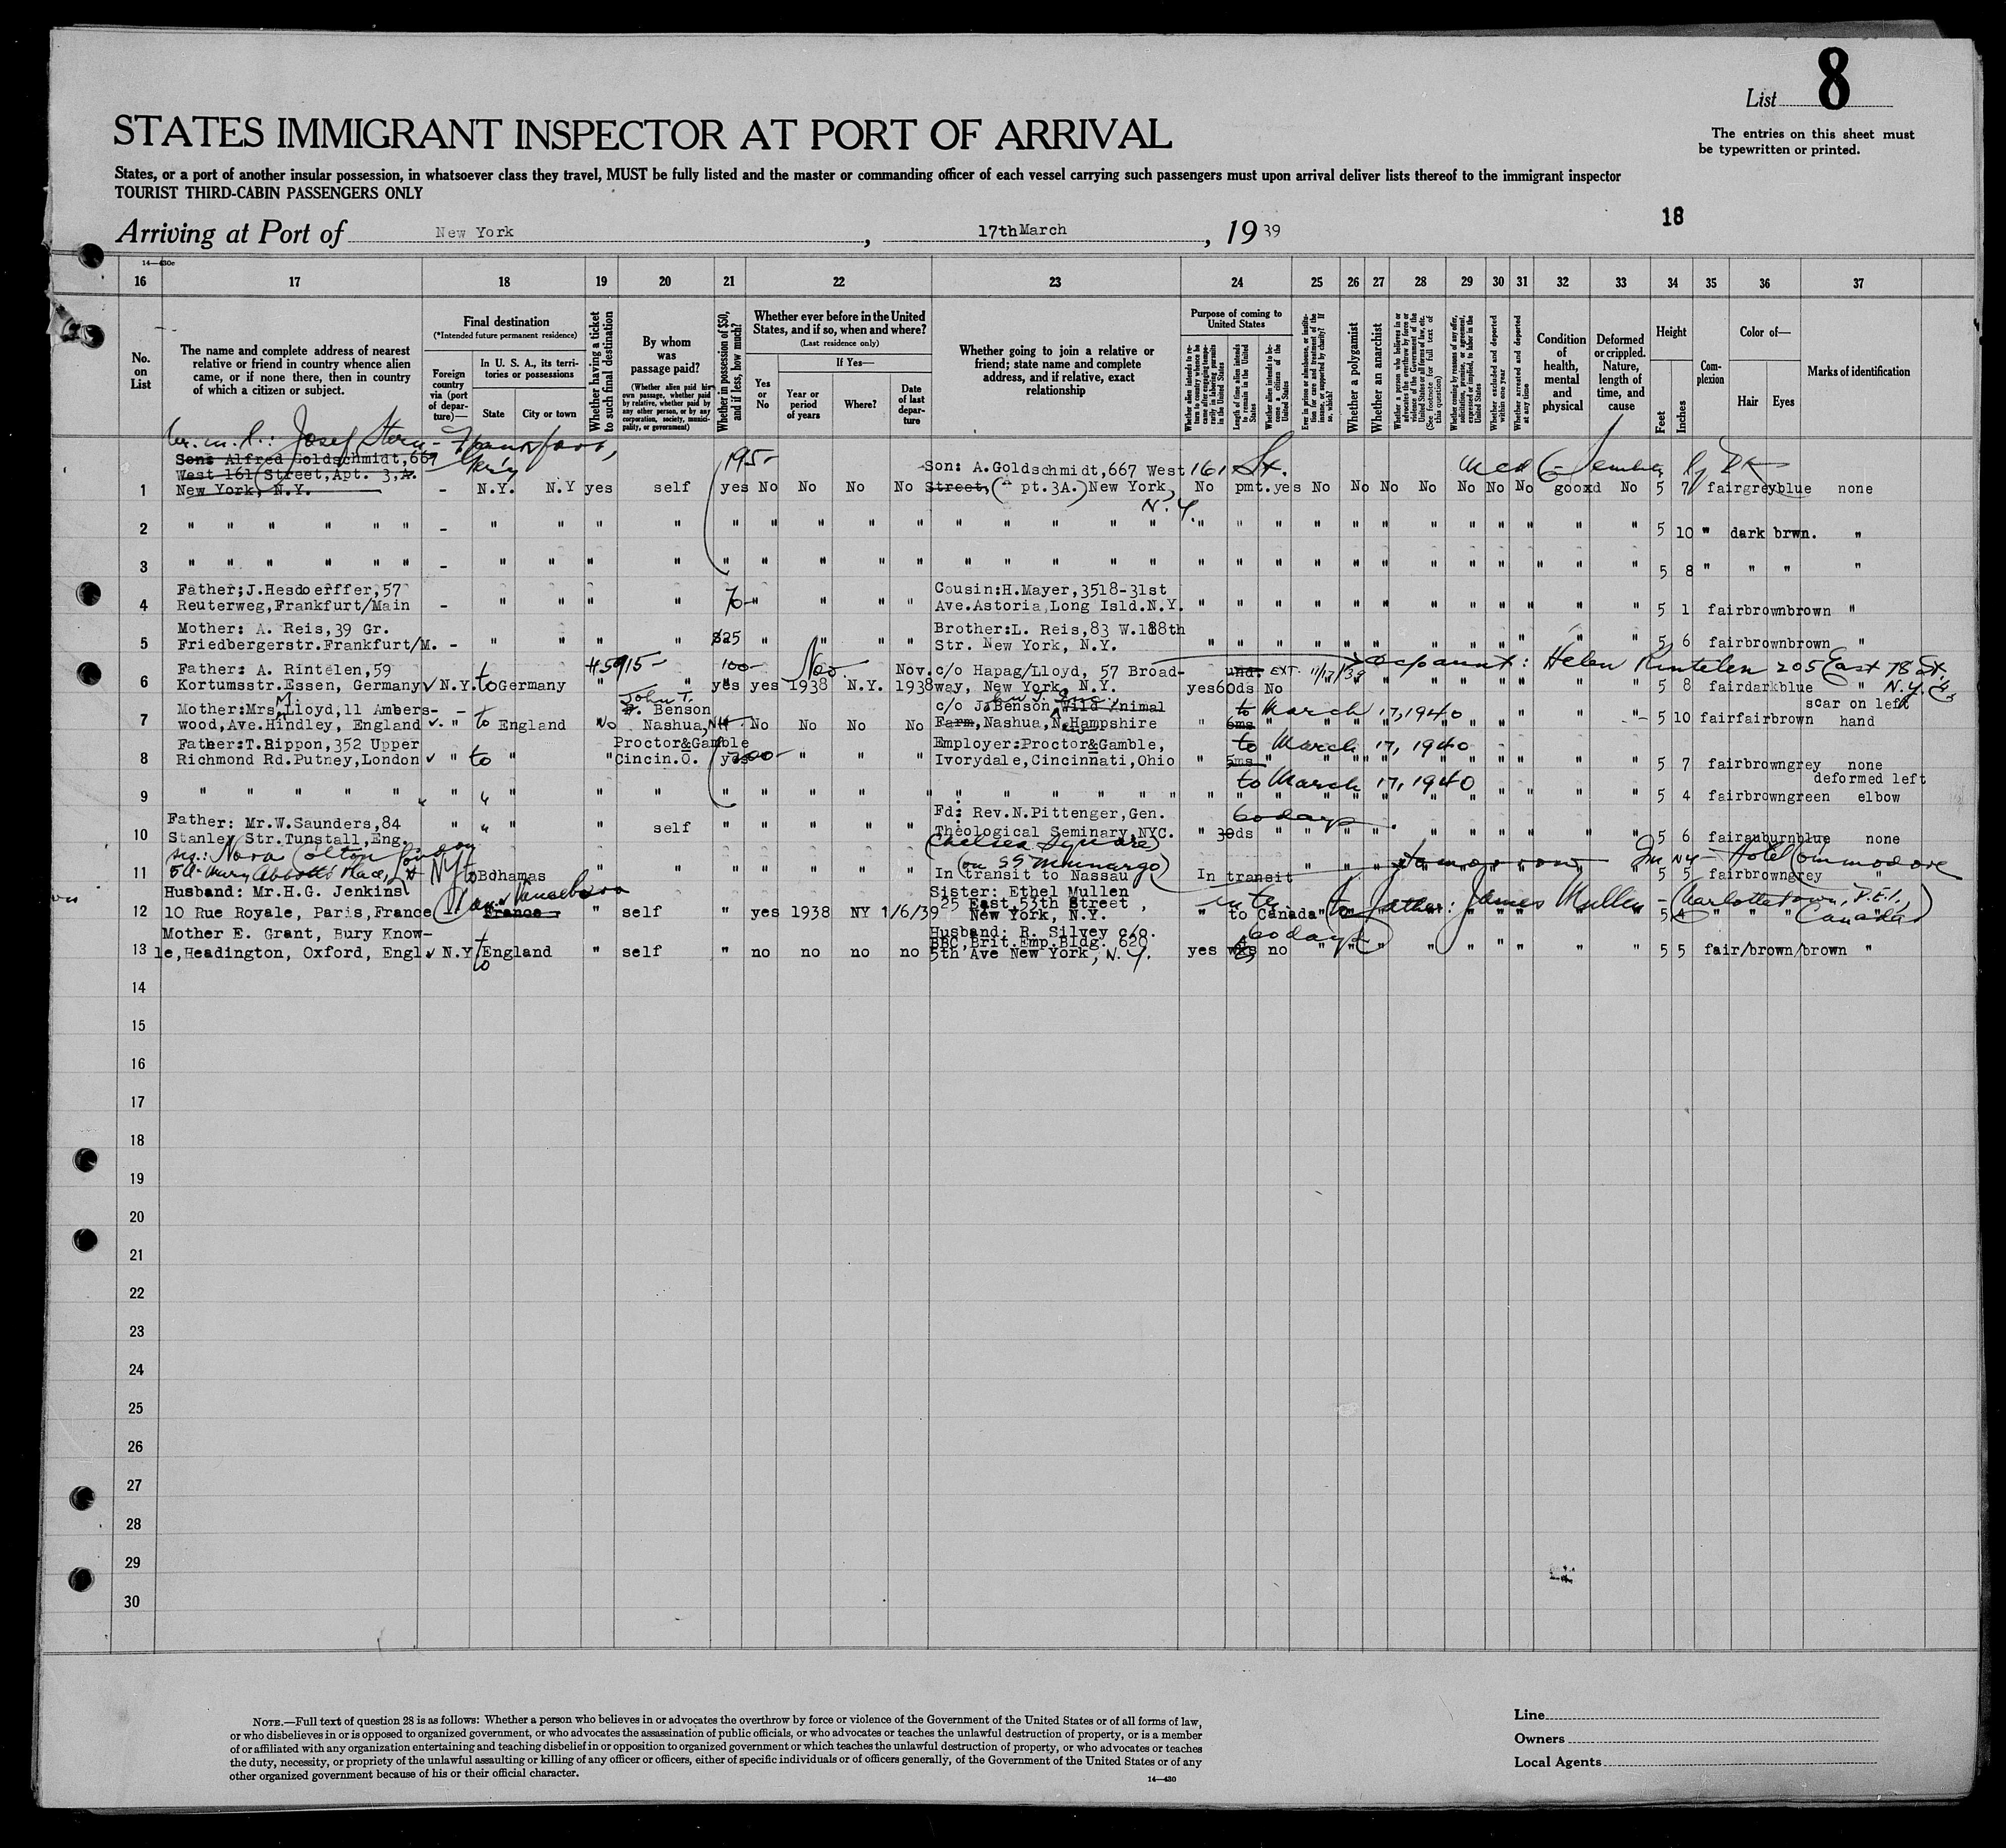 List 8
STATES IMMIGRANT INSPECTOR AT PORT OF ARRIVAL
The entries on this sheet must
be typewritten or printed.
States, or a port of another insular possession, in whatsoever class they travel, MUST be fully listed and the master or commanding officer of each vessel carrying such passengers must upon arrival deliver lists thereof to the immigrant inspector
TOURIST THIRD-CABIN PASSENGERS ONLY
18
Arriving at Port of New York, 17th March, 19 39
14—430c
16 17 18 19 20 21 22 23 24 25 26 27 28 29 30 31 32 33 34 35 36 37
No. on List
The name and complete address of nearest relative or friend in country whence alien came, or if none there, then in country of which a citizen or subject.
Final destination
(*Intended future permanent residence)
Foreign country via (port of departure)—
In U. S. A., its territories or possessions
State
City or town
Whether having a ticket to such final destination
By whom was passage paid?
(Whether alien paid his own passage, whether paid by relative, whether paid by any other person, or by any corporation, society, municipality, or government)
Whether in possession of $50, and if less, how much?
Whether ever before in the United States, and if so, when and where?
(Last residence only)
Yes or No
If Yes—
Year or period of years
Where?
Date of last departure
Whether going to join a relative or friend; state name and complete address, and if relative, exact relationship
Purpose of coming to United States
Whether alien intends to return to country whence he came after engaging temporarily in laboring pursuits in the United States
Length of time alien intends to remain in the United States
Whether alien intends to become a citizen of the United States
Ever in prison or almshouse, or institution for care and treatment of the insane, or supported by charity? If so, which?
Whether a polygamist
Whether an anarchist
Whether a person who believes in or advocates the overthrow by force or violence of the Government of the United States or all forms of law, etc. (See footnote for full text of this question)
Whether coming by reasons of any offer, solicitation, promise, or agreement, expressed or implied, to labor in the United States
Whether excluded and deported within one year
Whether arrested and deported at any time
Condition of health, mental and physical
Deformed or crippled. Nature, length of time, and cause
Height
Feet
Inches
Complexion
Color of—
Hair
Eyes
Marks of identification
Josef Stern - Frankfurt,
Son: Alfred Goldschmidt, 667
West 161 Street, Apt. 3,A.
195-
Son: A.Goldschmidt,667 West 161 St.
1 New York, N.Y. - N.Y. N.Y yes self yes No No No No Street, (A pt.3A.) New York, No pmt. yes No No No No No No No good No 5 7 fair grey blue none
N.Y.
2 " " " " " " - " " " " " " " " " " " " " " " " " " " " " " " " " " 5 10 " dark brwn. "
3 " " " " " " - " " " " " " " " " " " " " " " " " " " " " " " " " " 5 8 " " " "
Father;J.Hesdoerffer,57 Cousin:H.Mayer,3518-31st
4 Reuterweg,Frankfurt/Main - " " " " 70- " " " " Ave.Astoria,Long Isld.N.Y. " " " " " " " " " " " " 5 1 fair brown brown "
Mother: A. Reis,39 Gr. Brother:L. Reis,83 W.188th
5 Friedbergerstr.Frankfurt/M. - " " " " $25 " " " " Str. New York, N.Y. " " " " " " " " " " " " 5 6 fair brown brown "
Father: A. Rintelen,59 #5915- 100- Nov. Nov. c/o Hapag/Lloyd, 57 Broad- und. EXT. 11/17/39 account: Helen Rintelen 205 East 78 St.
6 Kortumsstr.Essen, Germany N.Y. to Germany " " yes yes 1938 N.Y. 1938 way, New York, N.Y. yes 60ds No " " " " " " " " " 5 8 fair dark blue " N.Y.C.
Mother:Mrs M. Lloyd,11 Ambers- John T. Benson c/o J. Benson Wild Animal to March 17, 1940 scar on left
7 wood,Ave.Hindley, England - " to England No Nashua, NH No No No No Farm, Nashua, N. Hampshire " 6ms " " 5 10 fair fair brown hand
Father:T.Rippon,352 Upper Proctor&Gamble Employer:Proctor&Gamble, to March 17, 1940
8 Richmond Rd.Putney,London " to " " Cincin.O. yes 200- " " " " Ivorydale,Cincinnati,Ohio " 5ms " " " " " " " " " " 5 7 fair brown grey none
to March 17, 1940 deformed left
9 " " " " " " " " " " " " " " " " " " " " " " " " " " " " " " " 5 4 fair brown green elbow
Father: Mr.W.Saunders,84 Fd: Rev.N.Pittenger,Gen. 60 days
10 Stanley Str.Tunstall,Eng. " " " " self " " " " " Theological Seminary,NYC. " 30ds " " " " " " " " " " 5 6 fair auburn blue none
(Chelsea Square)
Nora Colton London (on SS Munargo) Hotel Commodore
11 5A Mary Abbotts Place, NY to Bahamas " " " " " " " In transit to Nassau In transit " " " " " " " " " " 5 5 fair brown grey "
Husband: Mr.H.G. Jenkins Sister: Ethel Mullen
25 East 53th Street,
12 10 Rue Royale, Paris,France France " self " yes 1938 NY 1/6/39 New York, N.Y. " to Canada " (to father: James Mullen - Charlottetown, P.E.I., Canada) 5 4 " " " "
Mother E. Grant, Bury Know- Husband: R. Silvey c/o. 60 days
BBC,Brit.Emp.Bldg. 620
13 le,Headington, Oxford, Engl. N.Y. to England " self " no no no no 5th Ave New York, N.Y. yes wks no " " " " " " " " " 5 5 fair/brown/brown "
14
15
16
17
18
19
20
21
22
23
24
25
26
27
28
29
30
NOTE.—Full text of question 28 is as follows: Whether a person who believes in or advocates the overthrow by force or violence of the Government of the United States or of all forms of law,
or who disbelieves in or is opposed to organized government, or who advocates the assassination of public officials, or who advocates or teaches the unlawful destruction of property, or is a member
of or affiliated with any organization entertaining and teaching disbelief in or opposition to organized government or which teaches the unlawful destruction of property, or who advocates or teaches
the duty, necessity, or propriety of the unlawful assaulting or killing of any officer or officers, either of specific individuals or of officers generally, of the Government of the United States or of any
other organized government because of his or their official character.
14—430
Line
Owners
Local Agents